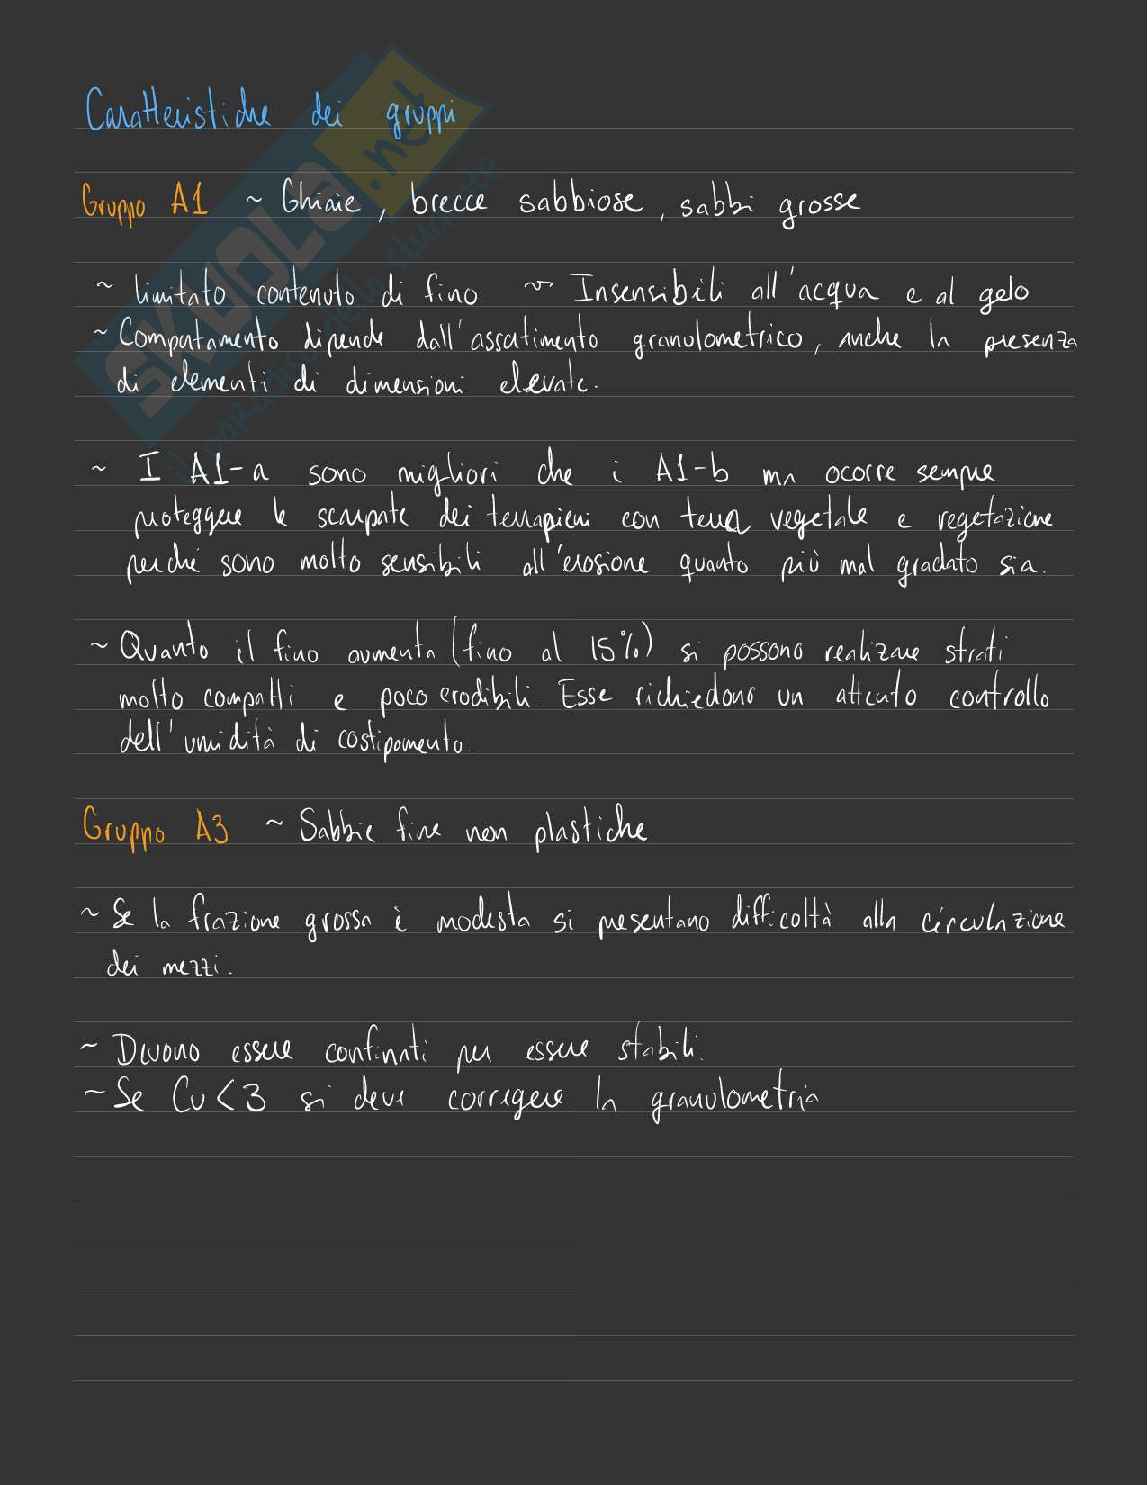 Caratteristiche dei gruppi
Gruppo A1 ~ Ghiaie, brecce sabbiose, sabbi grosse
~ limitato contenuto di fino ~ Insensibili all'acqua e al gelo
~ Comportamento dipende dall'assortimento granulometrico, anche la presenza
di elementi di dimensioni elevate.
~ I A1-a sono migliori che i A1-b ma ocorre sempre
proteggere le scarpate dei terrapieni con terra vegetale e vegetazione
perché sono molto sensibili all'erosione quanto più mal gradato sia.
~ Quanto il fino aumenta (fino al 15%) si possono realizzare strati
molto compatti e poco erodibili. Esse richiedono un attento controllo
dell'umidità di costipamento.
Gruppo A3 ~ Sabbie fine non plastiche
~ Se la frazione grossa è modesta si presentano difficoltà alla circulazione
dei mezzi.
~ Devono essere confinati per essere stabili.
~ Se Cu<3 si deve corregere la granulometria
SKUOLA.net